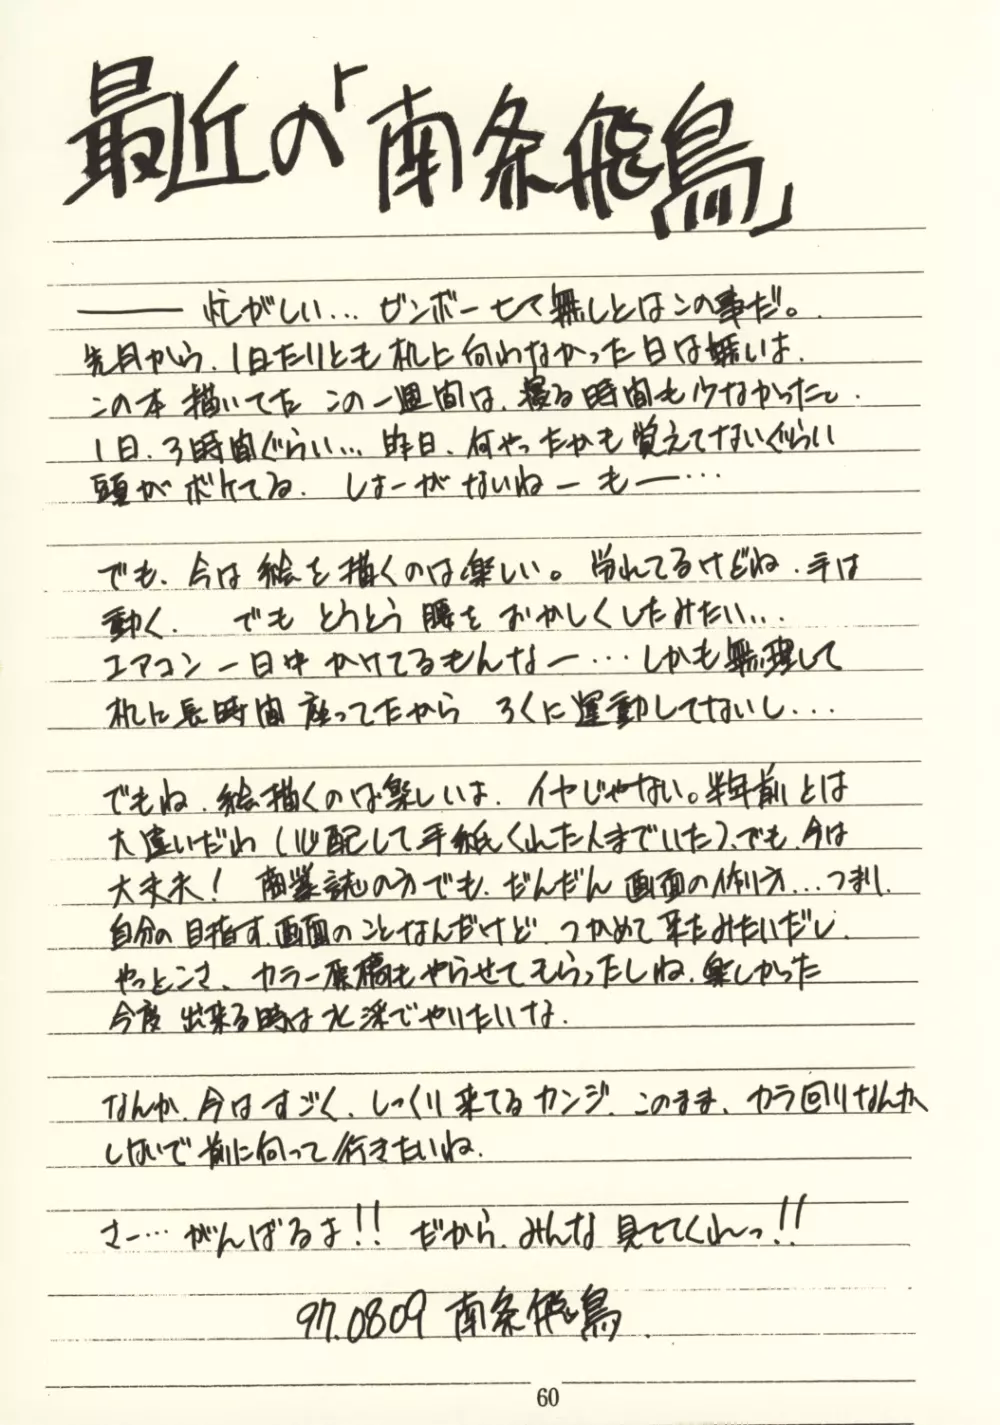 最近の「南条飛鳥」
―― 忙がしい… ビンボーヒマ無しとはこの事だ。
先月から、1日たりとも机に向わなかった日は無いよ、
この本描いてた この一週間は、寝る時間も少なかったし、
1日、3時間ぐらい… 昨日、何やったかも覚えてないぐらい
頭がボケてる、 しょーがないねーもー…
でも、今は絵を描くのは楽しい。 労れてるけどね、手は
動く、 でもとうとう腰をおかしくしたみたい…
エアコン一日中かけてるもんなー… しかも無理して
机に長時間座ってたから ろくに運動してないし…
でもね、絵描くのは楽しいよ、イヤじゃない。半年前とは
大違いだわ(心配して手紙くれた人までいた)、でも、今は
大丈夫! 商業誌の方でも、だんだん画面の作り方…つまり、
自分の目指す、画面のことなんだけど、つかめて来たみたいだし、
やっとこさ、カラー原稿もやらせてもらったしね、楽しかった
今度出来る時は水彩でやりたいな、
なんか、今はすごく、しっくり来てるカンジ、このまま、カラ回りなんか
しないで前に向って行きたいね、
さー… がんばるよ!! だから、みんな見ててくれっ!!
97.0809 南条飛鳥、
60